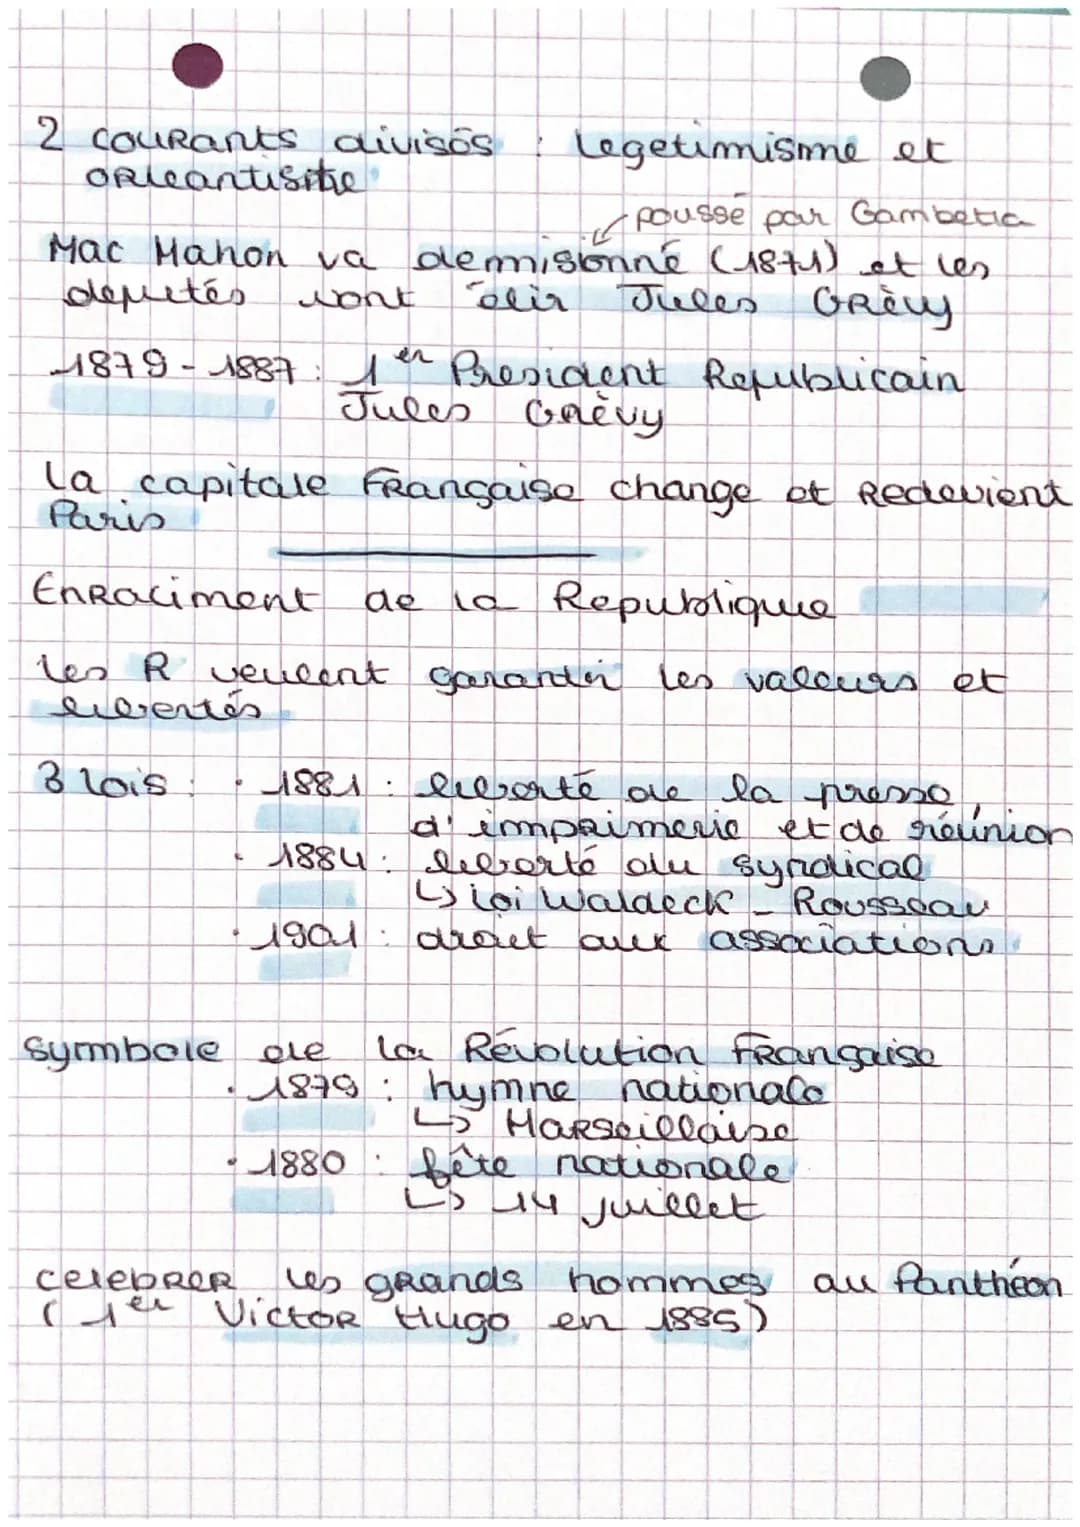 2 courants divisés : legetimisme et
orleantisme
poussé par Gambetta
Mac Mahon va demisionné (1871) et les
deputés vont élir Jules Grèvy
1879 - 1887 : 1er President Republicain
Jules Grèvy
la capitale Française change et Redevient
Paris
Enraciment de la Republique
les R veulent garantir les valeurs et
libertés
3 lois : · 1881 : liberté de la presse,
d'imprimerie et de réunion
· 1884 : liberté du syndical
↳ loi Waldeck - Rousseau
· 1901 : droit aux associations
symbole de la Révolution Française
· 1879 : hymne nationale
↳ Marseillaise
· 1880 : fête nationale
↳ 14 juillet
celebrer les grands hommes au Panthéon
(1er Victor Hugo en 1885)